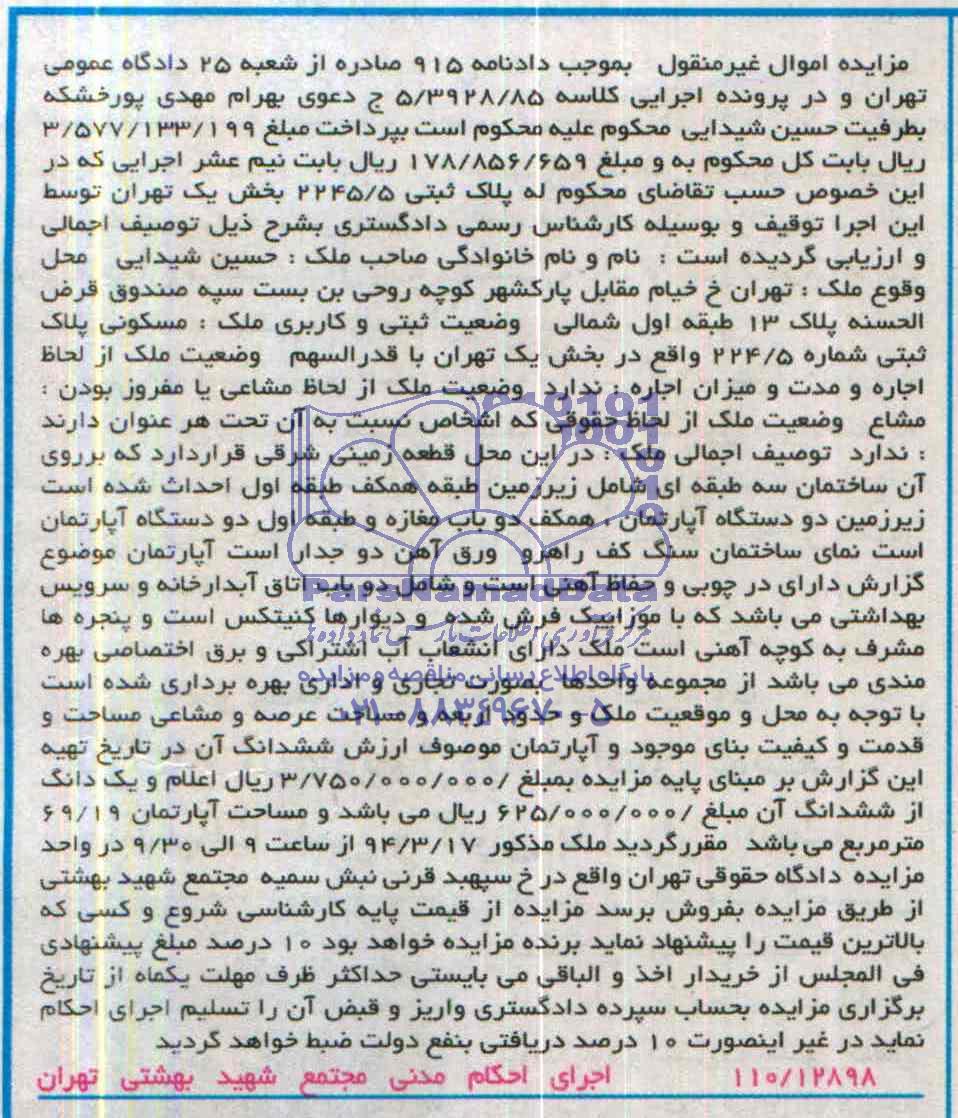 مزایده اموال غیرمنقول بموجب دادنامه ۹۱۵ صادره از شعبه ۲۵ دادگاه عمومی
تهران و در پرونده اجرایی کلاسه ۵/۳۹۲۸/۸۵ ج دعوی بهرام مهدی پورخشکه
بطرفیت حسین شیدایی محکوم علیه محکوم است بپرداخت مبلغ ۳/۵۷۷/۱۳۳/۱۹۹
ریال بابت کل محکوم به و مبلغ ۱۷۸/۸۵۶/۶۵۹ ریال بابت نیم عشر اجرایی که در
این خصوص حسب تقاضای محکوم له پلاک ثبتی ۲۲۴۵/۵ بخش یک تهران توسط
این اجرا توقیف و بوسیله کارشناس رسمی دادگستری بشرح ذیل توصیف اجمالی
و ارزیابی گردیده است : نام و نام خانوادگی صاحب ملک : حسین شیدایی محل
وقوع ملک : تهران خ خیام مقابل پارکشهر کوچه روحی بن بست سپه صندوق قرض
الحسنه پلاک ۱۳ طبقه اول شمالی وضعیت ثبتی و کاربری ملک : مسکونی پلاک
ثبتی شماره ۲۲۴/۵ واقع در بخش یک تهران با قدرالسهم وضعیت ملک از لحاظ
اجاره و مدت و میزان اجاره : ندارد وضعیت ملک از لحاظ مشاعی یا مفروز بودن :
مشاع وضعیت ملک از لحاظ حقوقی که اشخاص نسبت به آن تحت هر عنوان دارند
: ندارد توصیف اجمالی ملک : در این محل قطعه زمینی شرقی قراردارد که برروی
آن ساختمان سه طبقه ای شامل زیرزمین طبقه همکف طبقه اول احداث شده است
زیرزمین دو دستگاه آپارتمان ، همکف دو باب مغازه و طبقه اول دو دستگاه آپارتمان
است نمای ساختمان سنگ کف راهرو ورق آهن دو جدار است آپارتمان موضوع
گزارش دارای در چوبی و حفاظ آهنی است و شامل دو باب اتاق آبدارخانه و سرویس
بهداشتی می باشد که با موزاییک فرش شده و دیوارها کنیتکس است و پنجره ها
مشرف به کوچه آهنی است ملک دارای انشعاب آب اشتراکی و برق اختصاصی بهره
مندی می باشد از مجموعه واحدها بصورت تجاری و اداری بهره برداری شده است
با توجه به محل و موقعیت ملک و حدود اربعه و مساحت عرصه و مشاعی مساحت و
قدمت و کیفیت بنای موجود و آپارتمان موصوف ارزش ششدانگ آن در تاریخ تهیه
این گزارش بر مبنای پایه مزایده بمبلغ /۳/۷۵۰/۰۰۰/۰۰۰ ریال اعلام و یک دانگ
از ششدانگ آن مبلغ /۶۲۵/۰۰۰/۰۰۰ ریال می باشد و مساحت آپارتمان ۶۹/۱۹
مترمربع می باشد مقررگردید ملک مذکور ۹۴/۳/۱۷ از ساعت ۹ الی ۹/۳۰ در واحد
مزایده دادگاه حقوقی تهران واقع در خ سپهبد قرنی نبش سمیه مجتمع شهید بهشتی
از طریق مزایده بفروش برسد مزایده از قیمت پایه کارشناسی شروع و کسی که
بالاترین قیمت را پیشنهاد نماید برنده مزایده خواهد بود ۱۰ درصد مبلغ پیشنهادی
فی المجلس از خریدار اخذ و الباقی می بایستی حداکثر ظرف مهلت یکماه از تاریخ
برگزاری مزایده بحساب سپرده دادگستری واریز و قبض آن را تسلیم اجرای احکام
نماید در غیر اینصورت ۱۰ درصد دریافتی بنفع دولت ضبط خواهد گردید
۱۱۰/۱۲۸۹۸ اجرای احکام مدنی مجتمع شهید بهشتی تهران
ParsNamadData
پایگاه اطلاع رسانی مناقصه و مزایده
۰۲۱-۸۸۳۴۹۶۷۰-۵